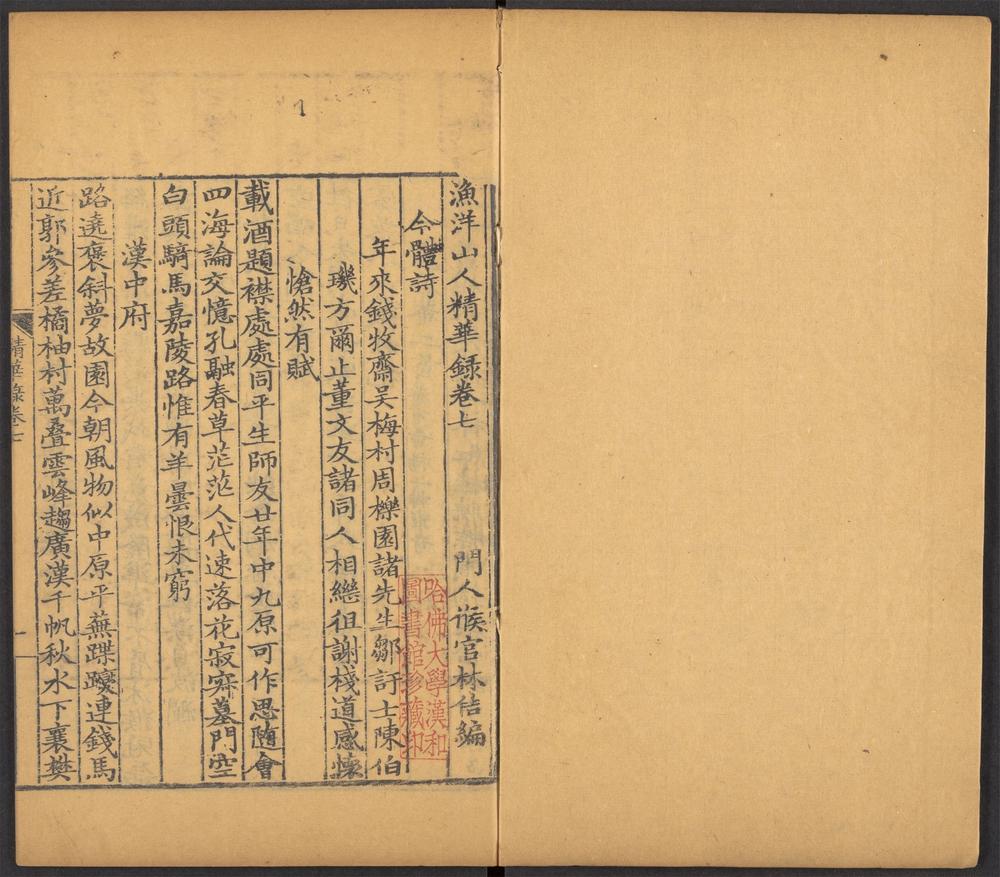 漁洋山人精華錄卷七
門人侯官林佶編
今體詩
年來錢牧齋吳梅村周櫟園諸先生鄒訏士陳伯
璣方爾止董文友諸同人相繼徂謝棧道感懷
愴然有賦
載酒題襟處處同平生師友廿年中九原可作思隨會
四海論交憶孔融春草茫茫人代速落花寂寂墓門空
白頭騎馬嘉陵路惟有羊曇恨未窮
漢中府
路遶褒斜夢故園今朝風物似中原平蕪蹀躞連錢馬
近郭參差橘柚村萬疊雲峰趨廣漢千帆秋水下襄樊
精華錄卷七
一
哈佛大學漢和
圖書館珍藏印